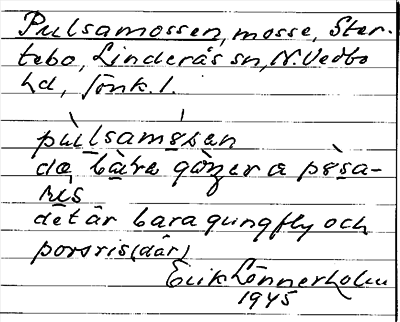 Pulsamossen, mosse, Ster-
tebo, Linderås sn, N. Vedbo
hd, Jönk. l.
pùlsamósən
dæ bàra gòŋər a pòsa-
ris
det är bara gungfly och
porsris (där)
Erik Lönnerholm
1945